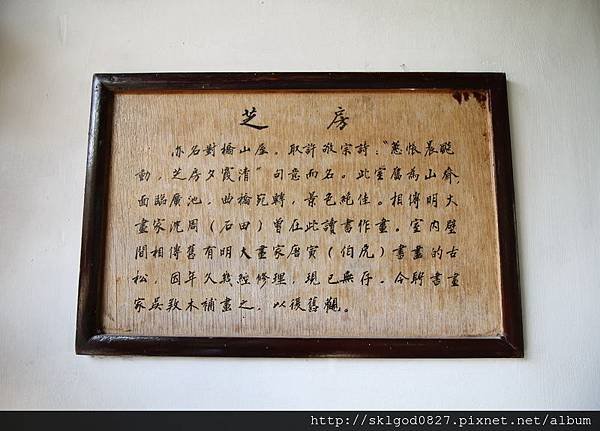 芝房
亦名對橋山屋。取許敬宗詩："蕙悵晨飈
動，芝房夕露清"句意而名。此室屬為山齋，
面臨廣池，曲橋宛轉，景色絕佳。相傳明大
畫家沈周（石田）曾在此讀書作畫。室內壁
間相傳舊有明大畫家唐寅（伯虎）書畫的古
松，因年久幾經修理，現已無存。今聘書畫
家吳敦木補畫之，以復舊觀。
http://sklgod0827.pixnet.net/album